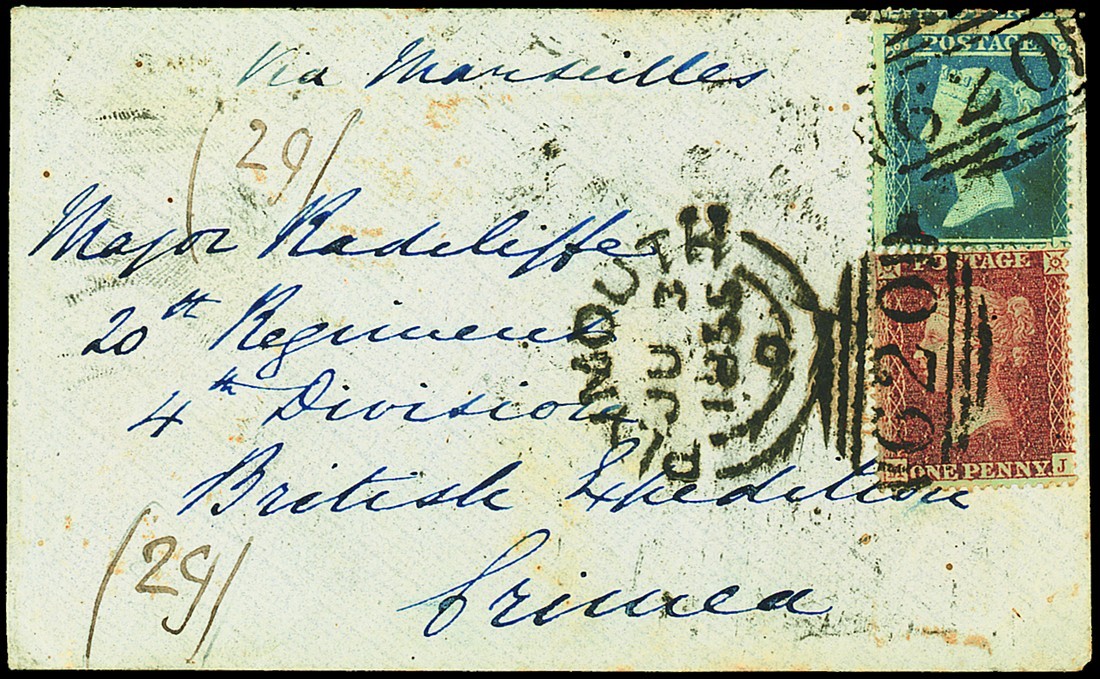 Via Marseilles
(29)
Major Radcliffe
20th Regiment
4th Division
British Expedition
Crimea
(29)
POSTAGE
620
POSTAGE
ONE PENNY
J
620
JU 3
1855